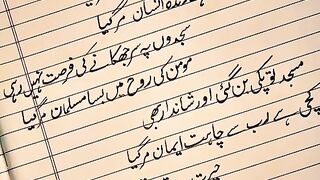 انسان مر گیا
سجدوں پہ سر جھکانے کی فرصت نہیں رہی
مومن کی روح میں بسا مسلمان مر گیا
مسجد تو پکی بن گئی اور شاندار بھی
کچی ہے رب سے چاہت ایمان مر گیا